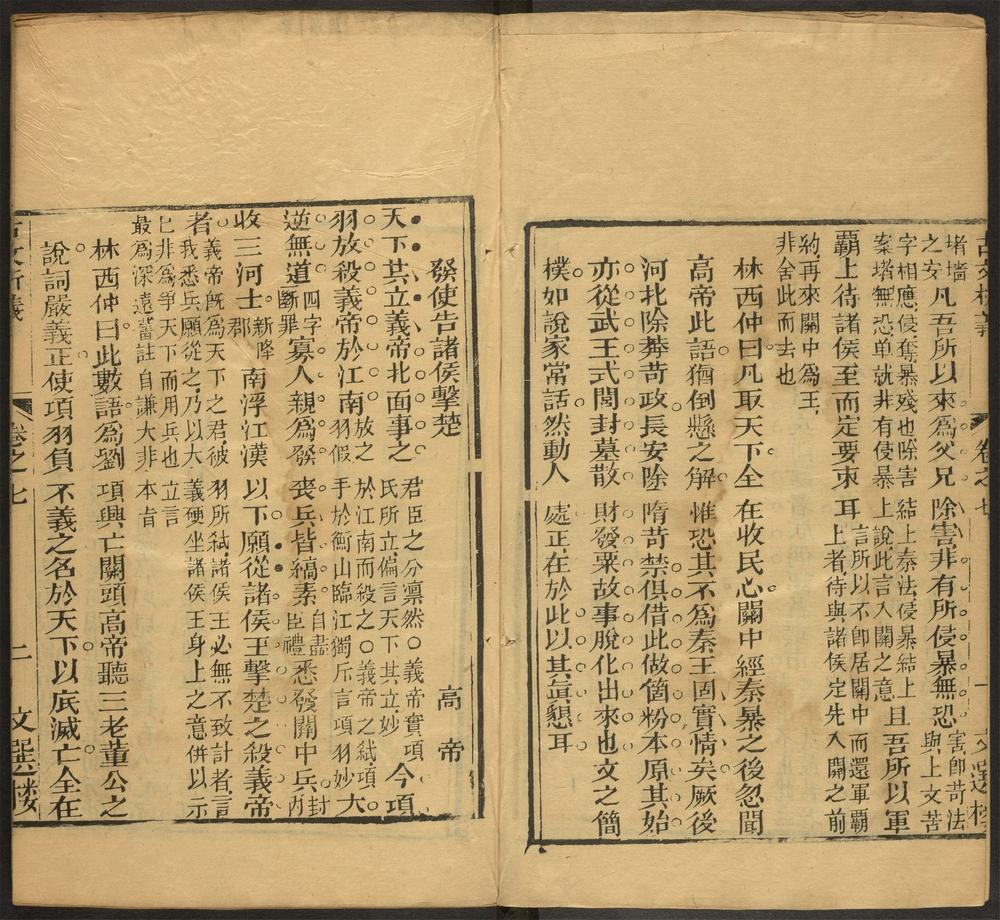 古文析義 卷之七 一 文選樓
堵墻
之安
凡吾所以來為父兄除害非有所侵暴無恐
害卽苛法
與上文苦
字相應侵奪暴殘也除害結上秦法侵暴結上
案堵無恐单就非有侵暴上說此言入關之意
且吾所以軍
覇上待諸侯至而定要朿耳
言所以不卽居關中而還軍覇
上者待與諸侯定先入關之前
約再來關中為王
非舍此而去也
林西仲曰凡取天下全在收民心關中經秦暴之後忽聞
高帝此語猶倒懸之解惟恐其不為秦王固實情矣厥後
河北除莽苛政長安除隋苛禁俱借此做箇粉本原其始
亦從武王式閭封墓散財發粟故事脫化出來也文之簡
樸如說家常話然動人處正在於此以其眞懇耳
發使告諸侯擊楚 高帝
天下共立義帝北面事之
君臣之分凛然○義帝實項
氏所立偏言天下共立妙
今項
羽放殺義帝於江南
放之於江南而殺之○義帝之弑項
羽假手於衡山臨江獨斥言項羽妙
大
逆無道
四字
斷罪
寡人親為發喪兵皆縞素
自盡
臣禮
悉發關中兵
封
收三河士
新降
郡
南浮江漢以下願從諸侯王擊楚之殺義帝
者
義帝旣為天下之君彼羽所弑諸侯王必無不致計者言
我悉兵願從之乃以大義硬坐諸侯王身上之意併以示
已非為爭天下而用兵也立言
最為深遠舊註自謙大非本旨
林西仲曰此數語為劉項興亡關頭高帝聽三老董公之
說詞嚴義正使項羽負不義之名於天下以底滅亡全在
古文析義 卷之七 二 文選樓